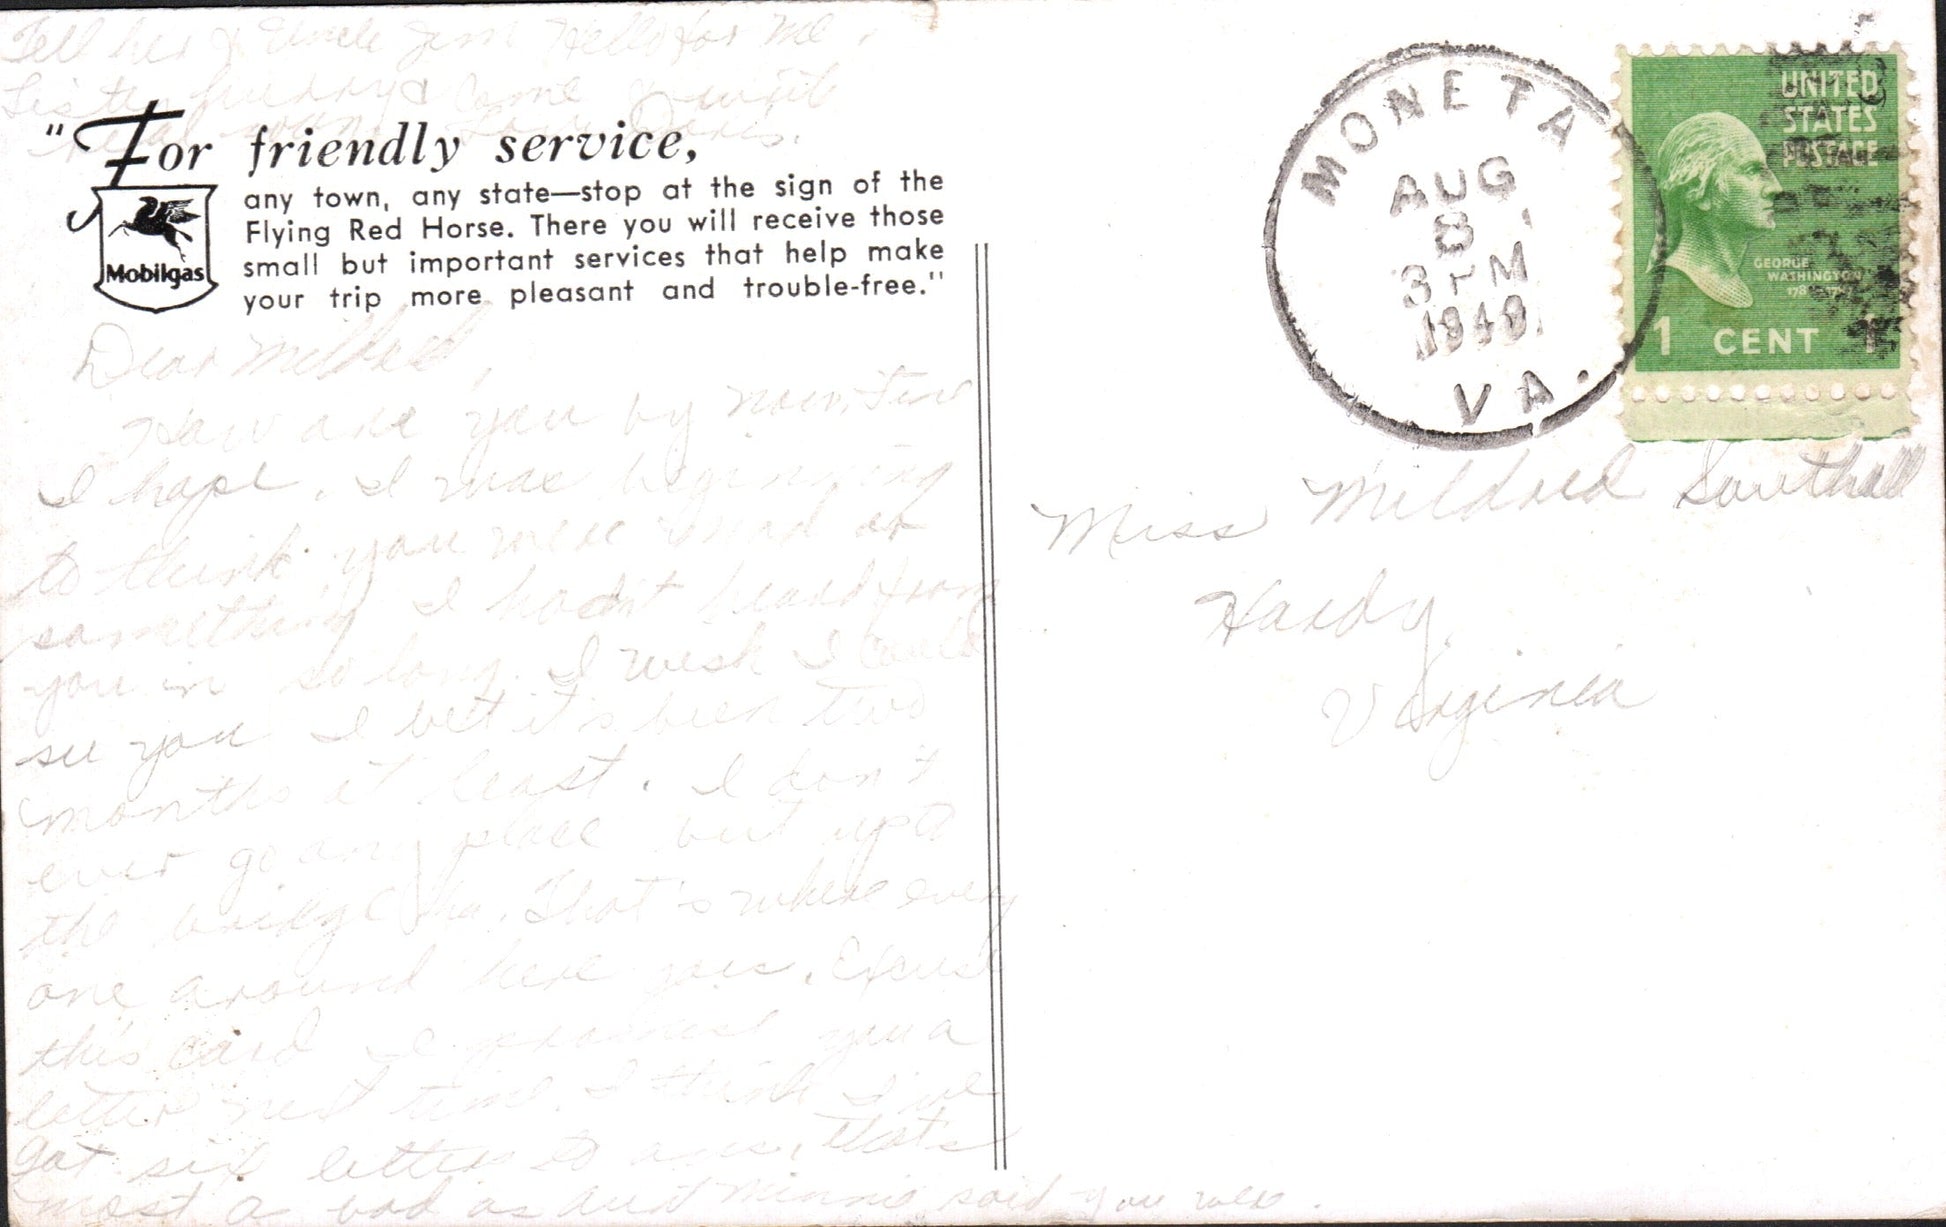 "For friendly service,
any town, any state—stop at the sign of the
Flying Red Horse. There you will receive those
small but important services that help make
your trip more pleasant and trouble-free."
Mobilgas
Dear Mildred,
How are you by now, Fine
I hope. I was beginning
to think you were mad or
something I hadn't heard from
you in so long. I wish I could
see you I bet it's been two
months at least. I don't
ever go any place but up to
the bridge ha. That's where every
one around here goes. Excuse
this card I promise you a
letter next time. I think I've
got six letters to ans. that's
most as bad as aunt Minnie said you were.
Tell her & Uncle Jim Hello for me.
Sister hurry & come & write
real soon Love Doris.
MONETA
AUG
8
3 PM
1949
VA.
UNITED
STATES
POSTAGE
GEORGE
WASHINGTON
1 CENT 1
Miss Mildred Southall
Hardy,
Virginia